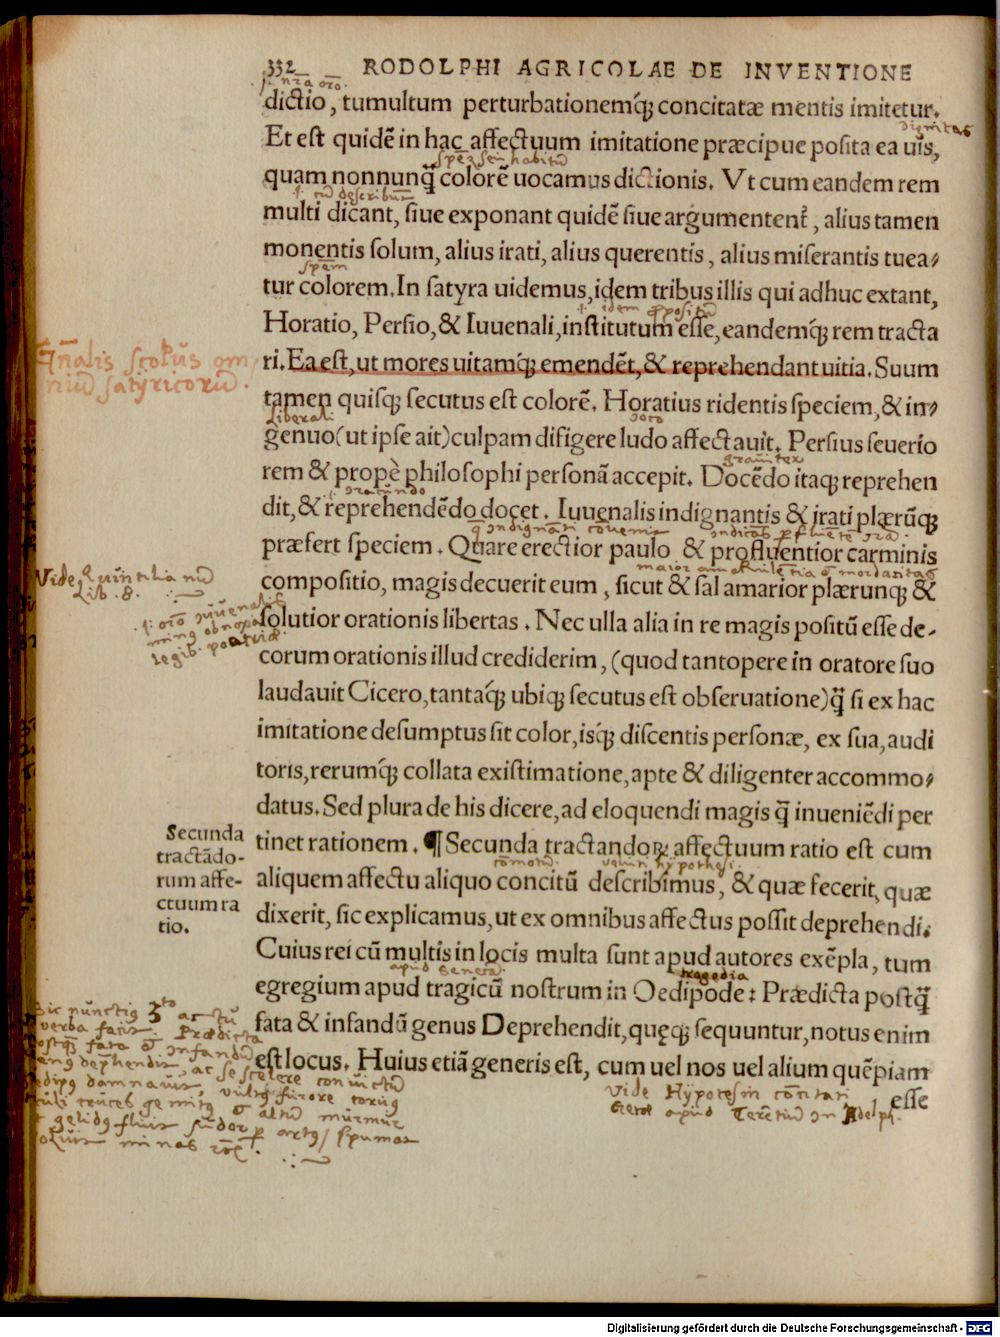 332 RODOLPHI AGRICOLAE DE INVENTIONE
dictio, tumultum perturbationemq́; concitatæ mentis imitetur.
dignitas
Et est quidē in hac affectuum imitatione præcipue posita ea uis,
quam nonnunq̃ colorē uocamus dictionis. Vt cum eandem rem
multi dicant, siue exponant quidē siue argumentent᷑, alius tamen
monentis solum, alius irati, alius querentis, alius miserantis tuea/
tur colorem. In satyra uidemus, idem tribus illis qui adhuc extant,
Horatio, Persio, & Iuuenali, institutum esse, eandemq́; rem tracta
ri. Ea est, ut mores uitamq́; emendēt, & reprehendant uitia. Suum
tamen quisq; secutus est colorē. Horatius ridentis speciem, & in/
Liberali
joco
genuo (ut ipse ait) culpam difigere ludo affectauit. Persius seuerio
rem & propè philosophi personā accepit. Docēdo itaq; reprehen
dit, & reprehendēdo docet. Iuuenalis indignantis & irati plærūq;
præfert speciem. Quare erectior paulo & profluentior carminis
compositio, magis decuerit eum, sicut & sal amarior plærunq; &
solutior orationis libertas. Nec ulla alia in re magis positū esse de-
corum orationis illud crediderim, (quod tantopere in oratore suo
laudauit Cicero, tantaq́; ubiq; secutus est obseruatione) q̃ si ex hac
imitatione desumptus sit color, isq́; discentis personæ, ex sua, audi
toris, rerumq́; collata existimatione, apte & diligenter accommo/
datus. Sed plura de his dicere, ad eloquendi magis q̃ inueniēdi per
tinet rationem. ¶ Secunda tractandoꝝ affectuum ratio est cum
aliquem affectu aliquo concitū describimus, & quæ fecerit, quæ
dixerit, sic explicamus, ut ex omnibus affectus possit deprehendi.
Cuius rei cū multis in locis multa sunt apud autores exēpla, tum
tragedia
egregium apud tragicū nostrum in Oedipode: Prædicta postq̃
fata & infandū genus Deprehendit, quęq; sequuntur, notus enim
est locus. Huius etiā generis est, cum uel nos uel alium quēpiam
esse
Gñalis scopus om
niū satyricorū.
Vide Quintilianū
Lib. 8.
Secunda
tractādo-
rum affe-
ctuum ra
tio.
Digitalisierung gefördert durch die Deutsche Forschungsgemeinschaft - DFG